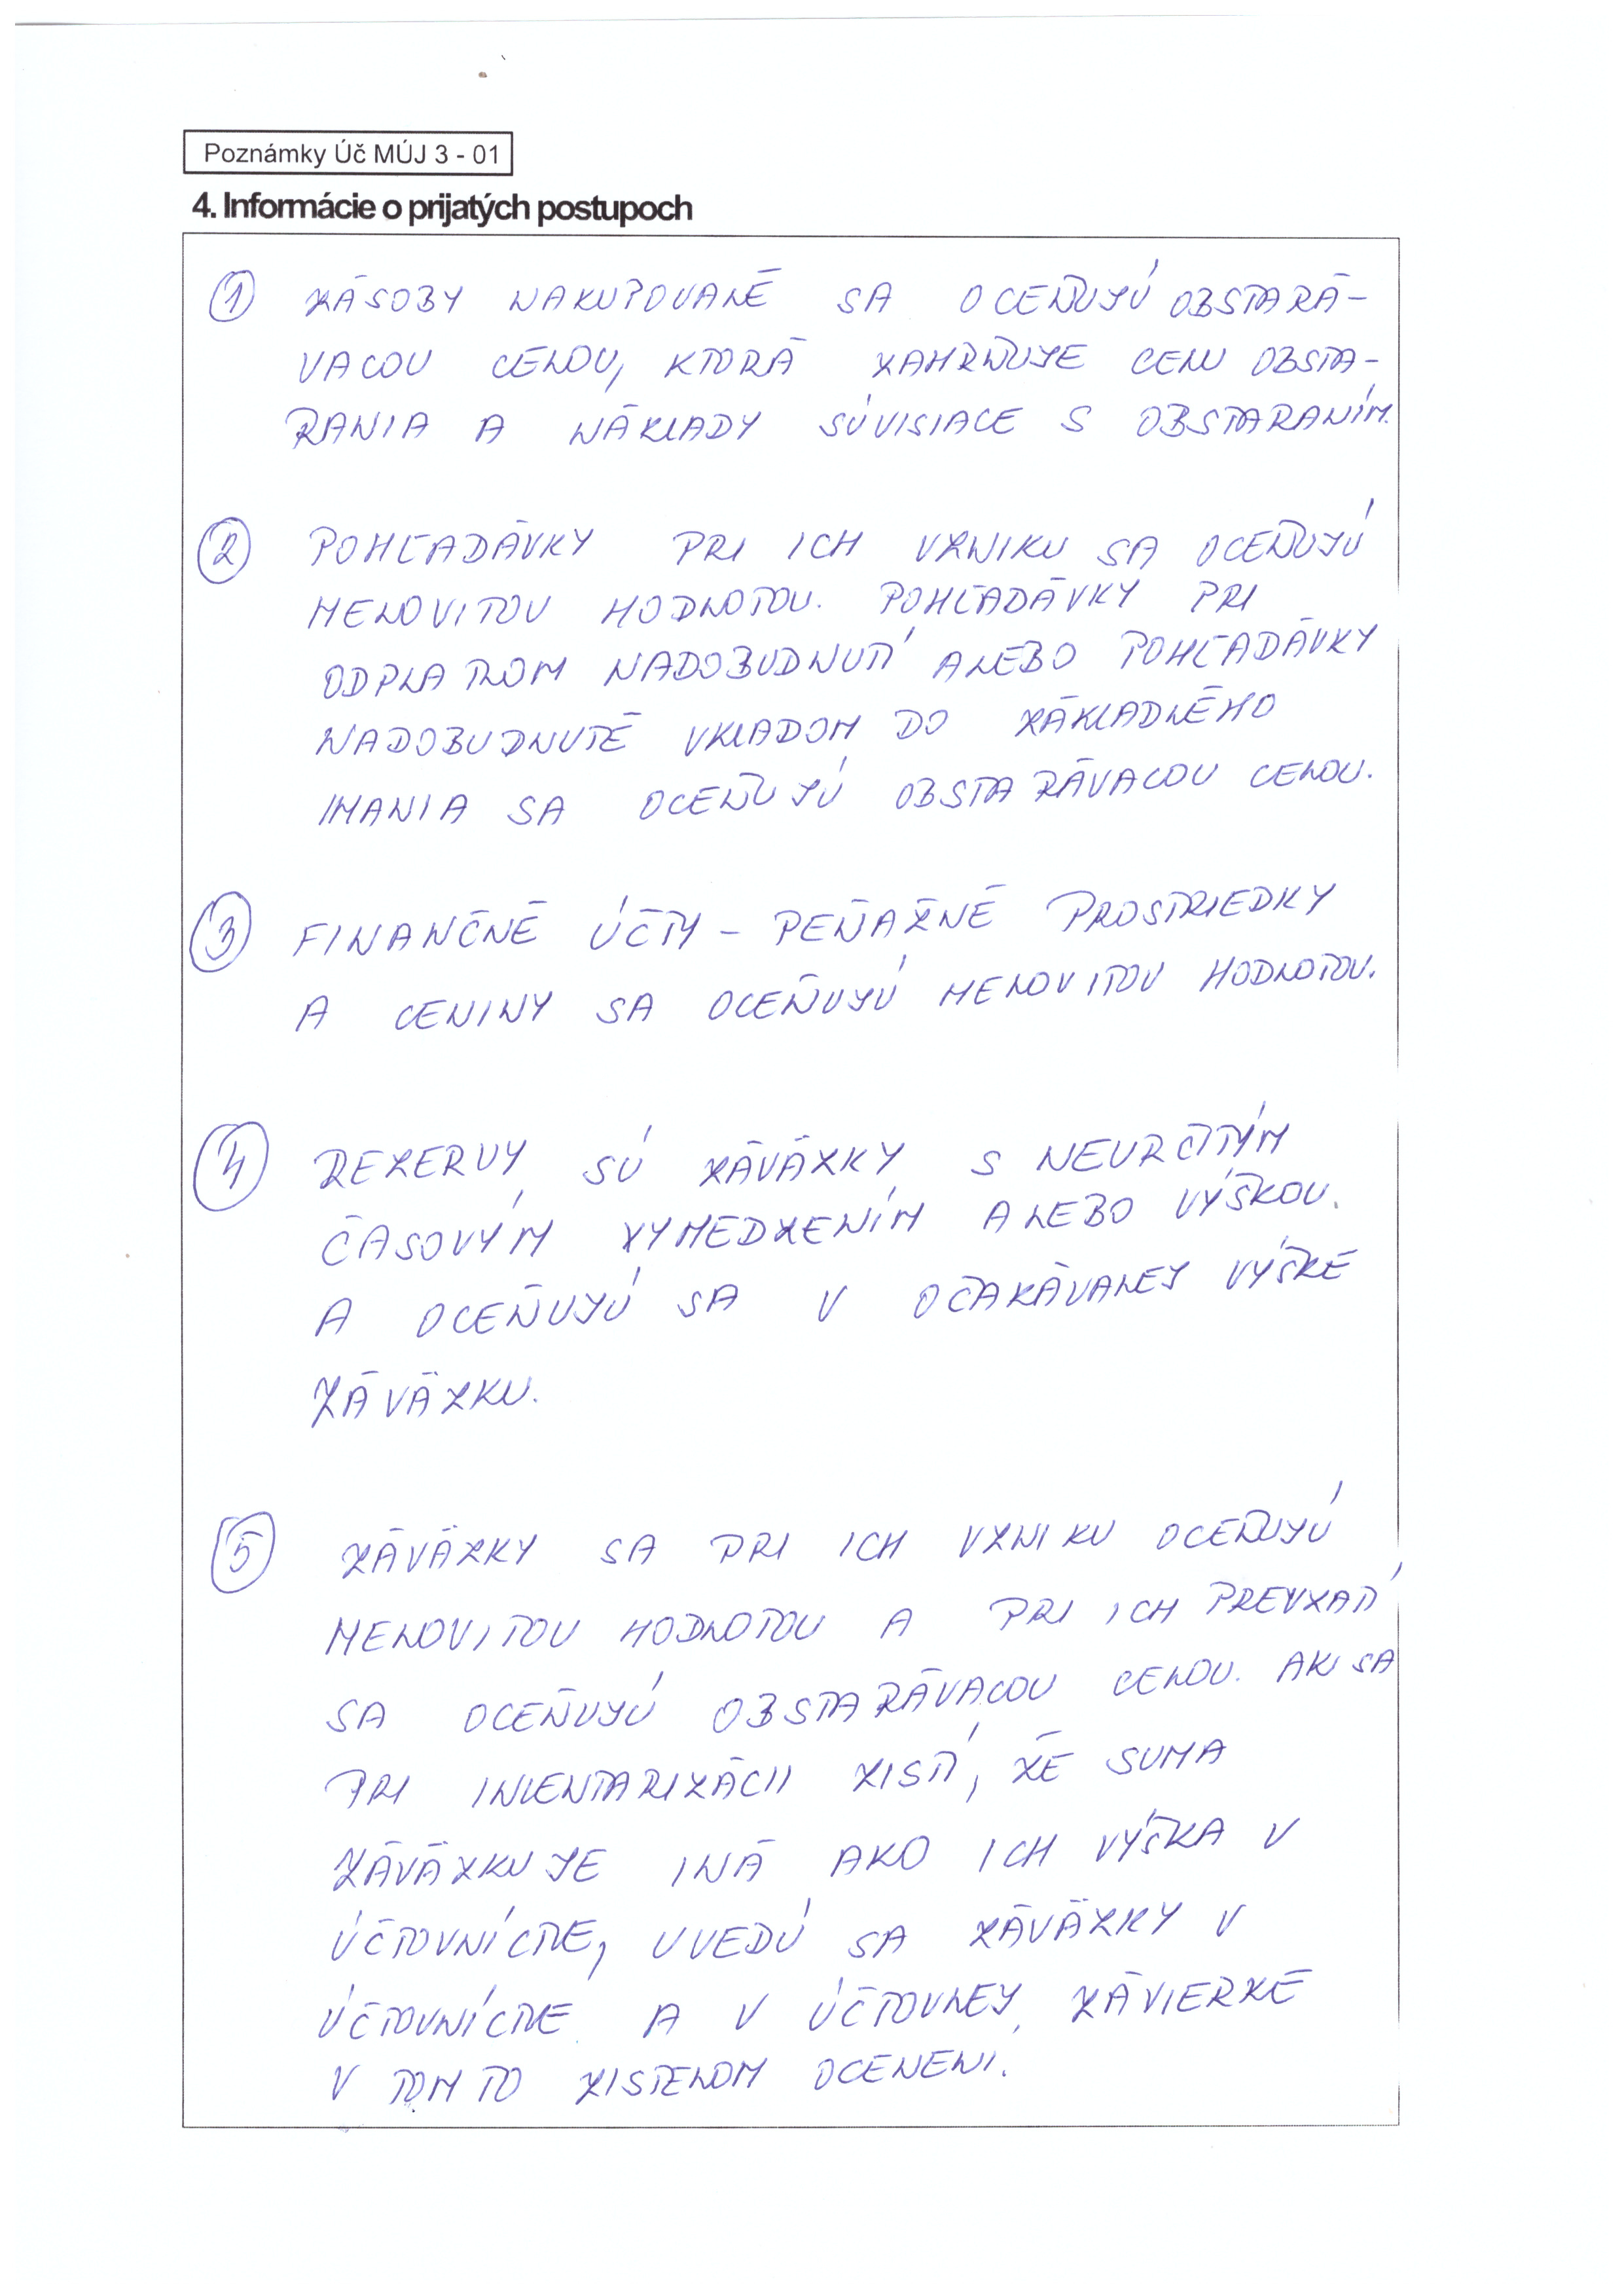 Poznámky Úč MÚJ 3 - 01
4. Informácie o prijatých postupoch
① ZÁSOBY NAKUPOVANÉ SA OCEŇUJÚ OBSTARÁ-
VACOU CENOU, KTORÁ ZAHRŇUJE CENU OBSTA-
RANIA A NÁKLADY SÚVISIACE S OBSTARANÍM.
② POHĽADÁVKY PRI ICH VZNIKU SA OCEŇUJÚ
MENOVITOU HODNOTOU. POHĽADÁVKY PRI
ODPLATNOM NADOBUDNUTÍ ALEBO POHĽADÁVKY
NADOBUDNUTÉ VKLADOM DO ZÁKLADNÉHO
IMANIA SA OCEŇUJÚ OBSTARÁVACOU CENOU.
③ FINANČNÉ ÚČTY - PEŇAŽNÉ PROSTRIEDKY
A CENINY SA OCEŇUJÚ MENOVITOU HODNOTOU.
④ REZERVY SÚ ZÁVÄZKY S NEURČITÝM
ČASOVÝM VYMEDZENÍM ALEBO VÝŠKOU.
A OCEŇUJÚ SA V OČAKÁVANEJ VÝŠKE
ZÁVÄZKU.
⑤ ZÁVÄZKY SA PRI ICH VZNIKU OCEŇUJÚ
MENOVITOU HODNOTOU A PRI ICH PREVZATÍ
SA OCEŇUJÚ OBSTARÁVACOU CENOU. AK SA
PRI INVENTARIZÁCII ZISTÍ, ŽE SUMA
ZÁVÄZKU JE INÁ AKO ICH VÝŠKA V
ÚČTOVNÍCTVE, UVEDÚ SA ZÁVÄZKY V
ÚČTOVNÍCTVE A V ÚČTOVNEJ ZÁVIERKE
V TOMTO ZISTENOM OCENENI.